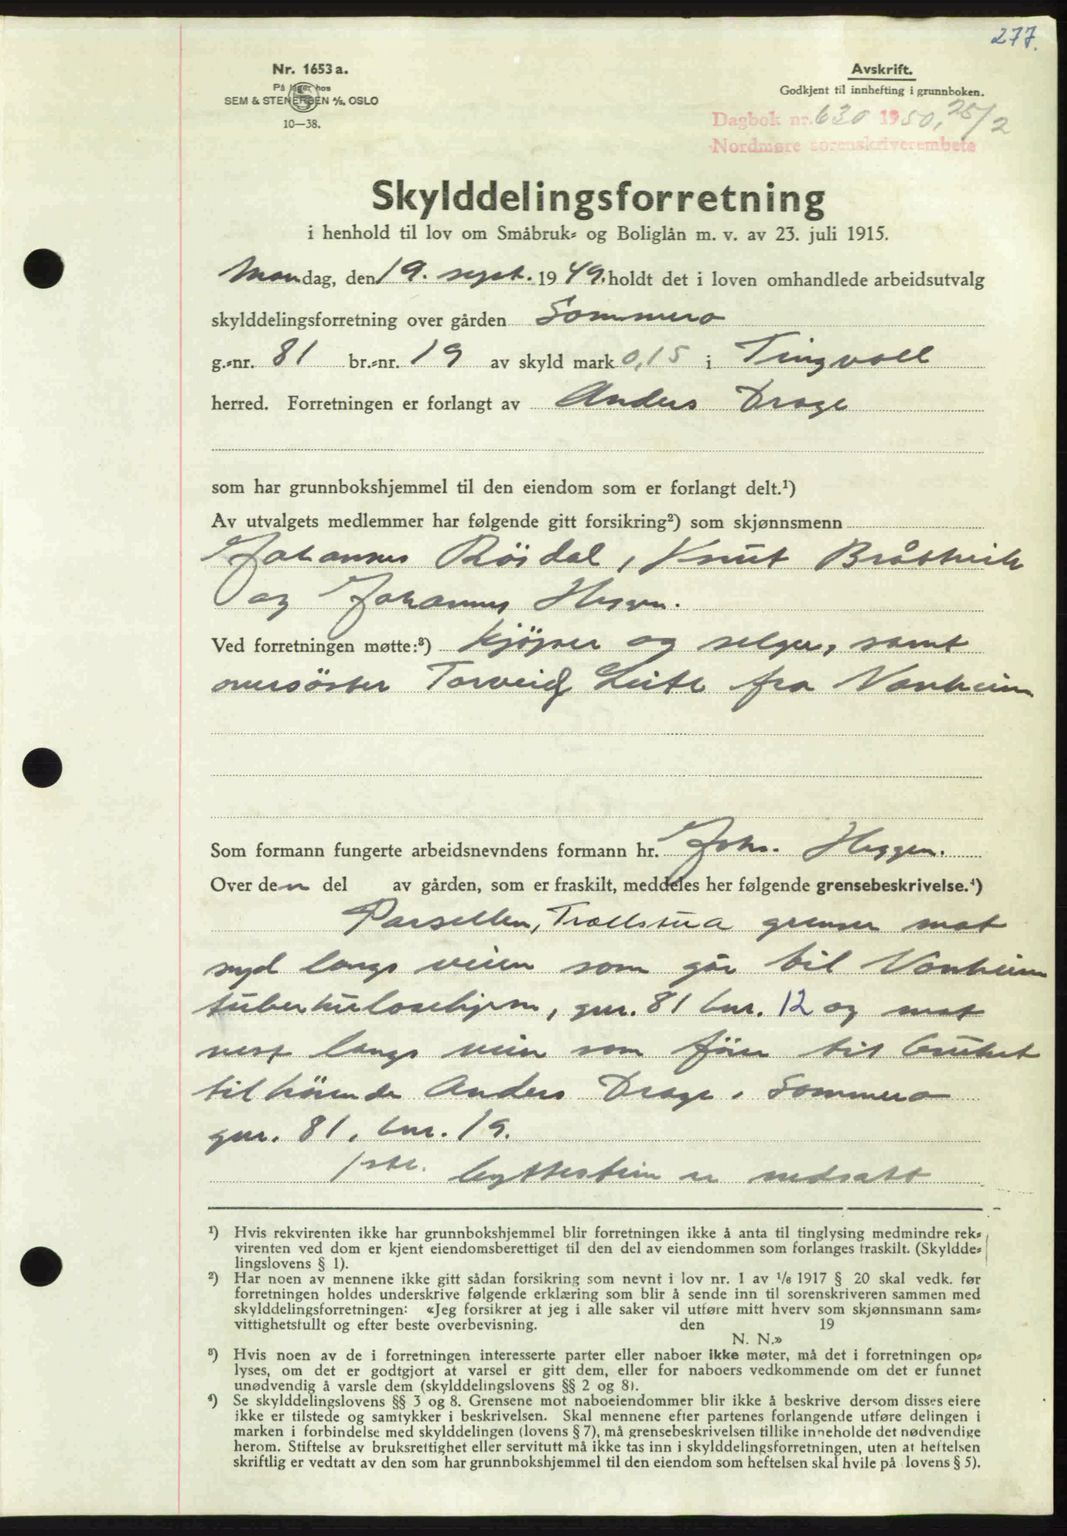 277.
Nr. 1653 a.
På lager hos
SEM & STENERSEN A/S, OSLO
10—38.
Avskrift.
Godkjent til innhefting i grunnboken.
Dagbok nr. 630 1950, 25/2
Nordmøre sorenskriverembete
Skylddelingsforretning
i henhold til lov om Småbruk- og Boliglån m. v. av 23. juli 1915.
Mandag, den 19. sept. 1949. holdt det i loven omhandlede arbeidsutvalg
skylddelingsforretning over gården Sommero
g.-nr. 81 br.-nr. 19 av skyld mark 0,15 i Tingvoll
herred. Forretningen er forlangt av Anders Drage
som har grunnbokshjemmel til den eiendom som er forlangt delt.¹)
Av utvalgets medlemmer har følgende gitt forsikring²) som skjønnsmenn
Johannes Röidal, Knut Bråttvik
og Johannes
Ved forretningen møtte:³) kjöper og selger, samt
oversöster Leite fra Vonheim
Som formann fungerte arbeidsnevndens formann hr. Johs. Heggem.
Over den del av gården, som er fraskilt, meddeles her følgende grensebeskrivelse.⁴)
Parsellen, Trollstua grenser mot
syd langs veien som går til Vonheim
tuberkulosehjem, gnr. 81 bnr. 12 og mot
vest langs veien som förer til bruket
tilhörende Anders Drage, Sommero
gnr. 81, bnr. 19.
1 stk. byttestein er nedsatt
¹) Hvis rekvirenten ikke har grunnbokshjemmel blir forretningen ikke å anta til tinglysing medmindre rek-
virenten ved dom er kjent eiendomsberettiget til den del av eiendommen som forlanges fraskilt. (Skyldde-
lingslovens § 1).
²) Har noen av mennene ikke gitt sådan forsikring som nevnt i lov nr. 1 av 1/6 1917 § 20 skal vedk. før
forretningen holdes underskrive følgende erklæring som blir å sende inn til sorenskriveren sammen med
skylddelingsforretningen: «Jeg forsikrer at jeg i alle saker vil utføre mitt hverv som skjønnsmann sam-
vittighetsfullt og efter beste overbevisning. den 19
N. N.»
³) Hvis noen av de i forretningen interesserte parter eller naboer ikke møter, må det i forretningen op-
lyses, om det er godtgjort at varsel er gitt dem, eller for naboers vedkommende om det er funnet
unødvendig å varsle dem (skylddelingslovens §§ 2 og 8).
⁴) Se skylddelingslovens §§ 3 og 8. Grensene mot naboeiendommer blir ikke å beskrive dersom disses eiere
ikke er tilstede og samtykker i beskrivelsen. Skal mennene efter partenes forlangende utføre delingen i
marken i forbindelse med skylddelingen (lovens § 7), må grensebeskrivelsen tillike inneholde det nødvendige
herom. Stiftelse av bruksrettighet eller servitutt må ikke tas inn i skylddelingsforretningen, uten at heftelsen
skriftlig er vedtatt av den som har grunnbokshjemmel til den eiendom som heftelsen skal hvile på lovens § 5).